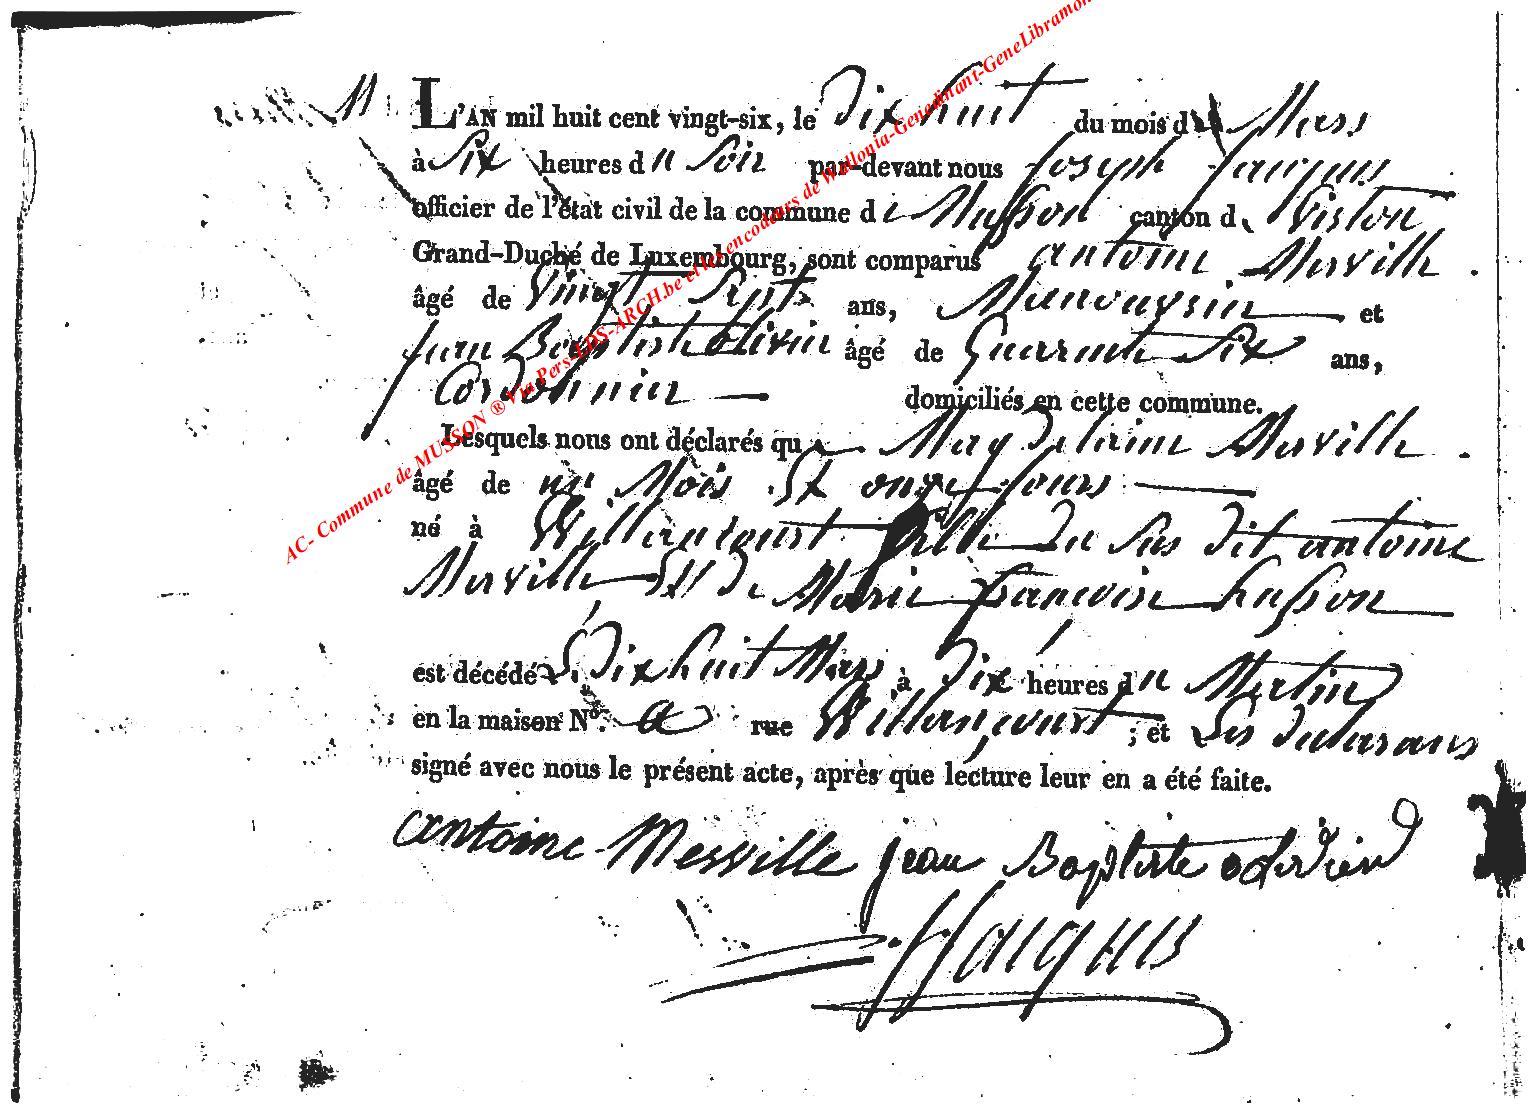 L'AN mil huit cent vingt-six, le Dix huit du mois d Mars
à Six heures du Soir par-devant nous Joseph Jacques
officier de l'état civil de la commune de Musson canton de Virton
Grand-Duché de Luxembourg, sont comparus antoine Merville
âgé de Vingt Sept ans, Manouvrier et
Jean Baptiste âgé de Quarante Six ans,
Cordonnier domiciliés en cette commune.
Lesquels nous ont déclarés que Magdelaine Merville
âgé de un Mois Et onze Jours
né à Willancourt fille du Sus dit antoine
Merville Et de Marie françoise husson
est décédé Le Dix huit Mars à Dix heures du Mertin
en la maison N°. rue Willancourt ; et Les declarans
signé avec nous le présent acte, après que lecture leur en a été faite.
antoine Merville Jean Baptiste
JJacques
AC- Commune de MUSSON ® Via Pers-LDS-ARCH.be et les encodeurs de Wallonia-Genedinant-GeneLibramon